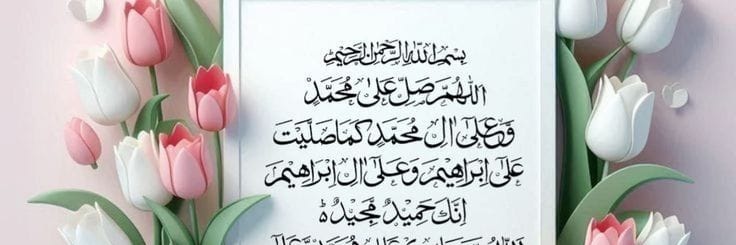 بِسْمِ اللهِ الرَّحْمٰنِ الرَّحِيْمِ
اَللّٰهُمَّ صَلِّ عَلٰى مُحَمَّدٍ
وَّعَلٰٓى اٰلِ مُحَمَّدٍ كَمَا صَلَّيْتَ
عَلٰٓى اِبْرَاهِيْمَ وَعَلٰٓى اٰلِ اِبْرَاهِيْمَ
اِنَّكَ حَمِيْدٌ مَّجِيْدٌ ط